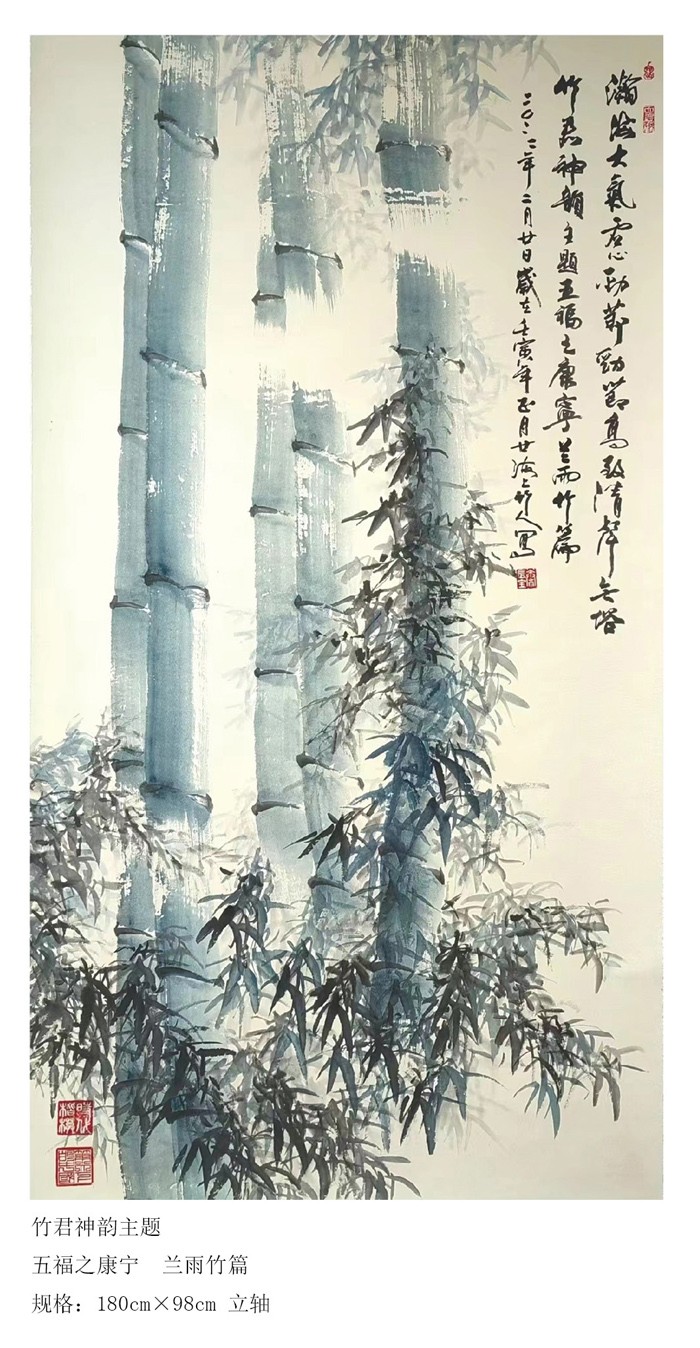 瀚海大氣虛心勁節勁節高致清聲無塔
竹君神韻主題五福之康寧兰雨竹篇
二〇二二年二月廿日歲在壬寅年正月廿海上竹人寫
竹君神韵主题
五福之康宁　兰雨竹篇
规格：180cm×98cm 立轴